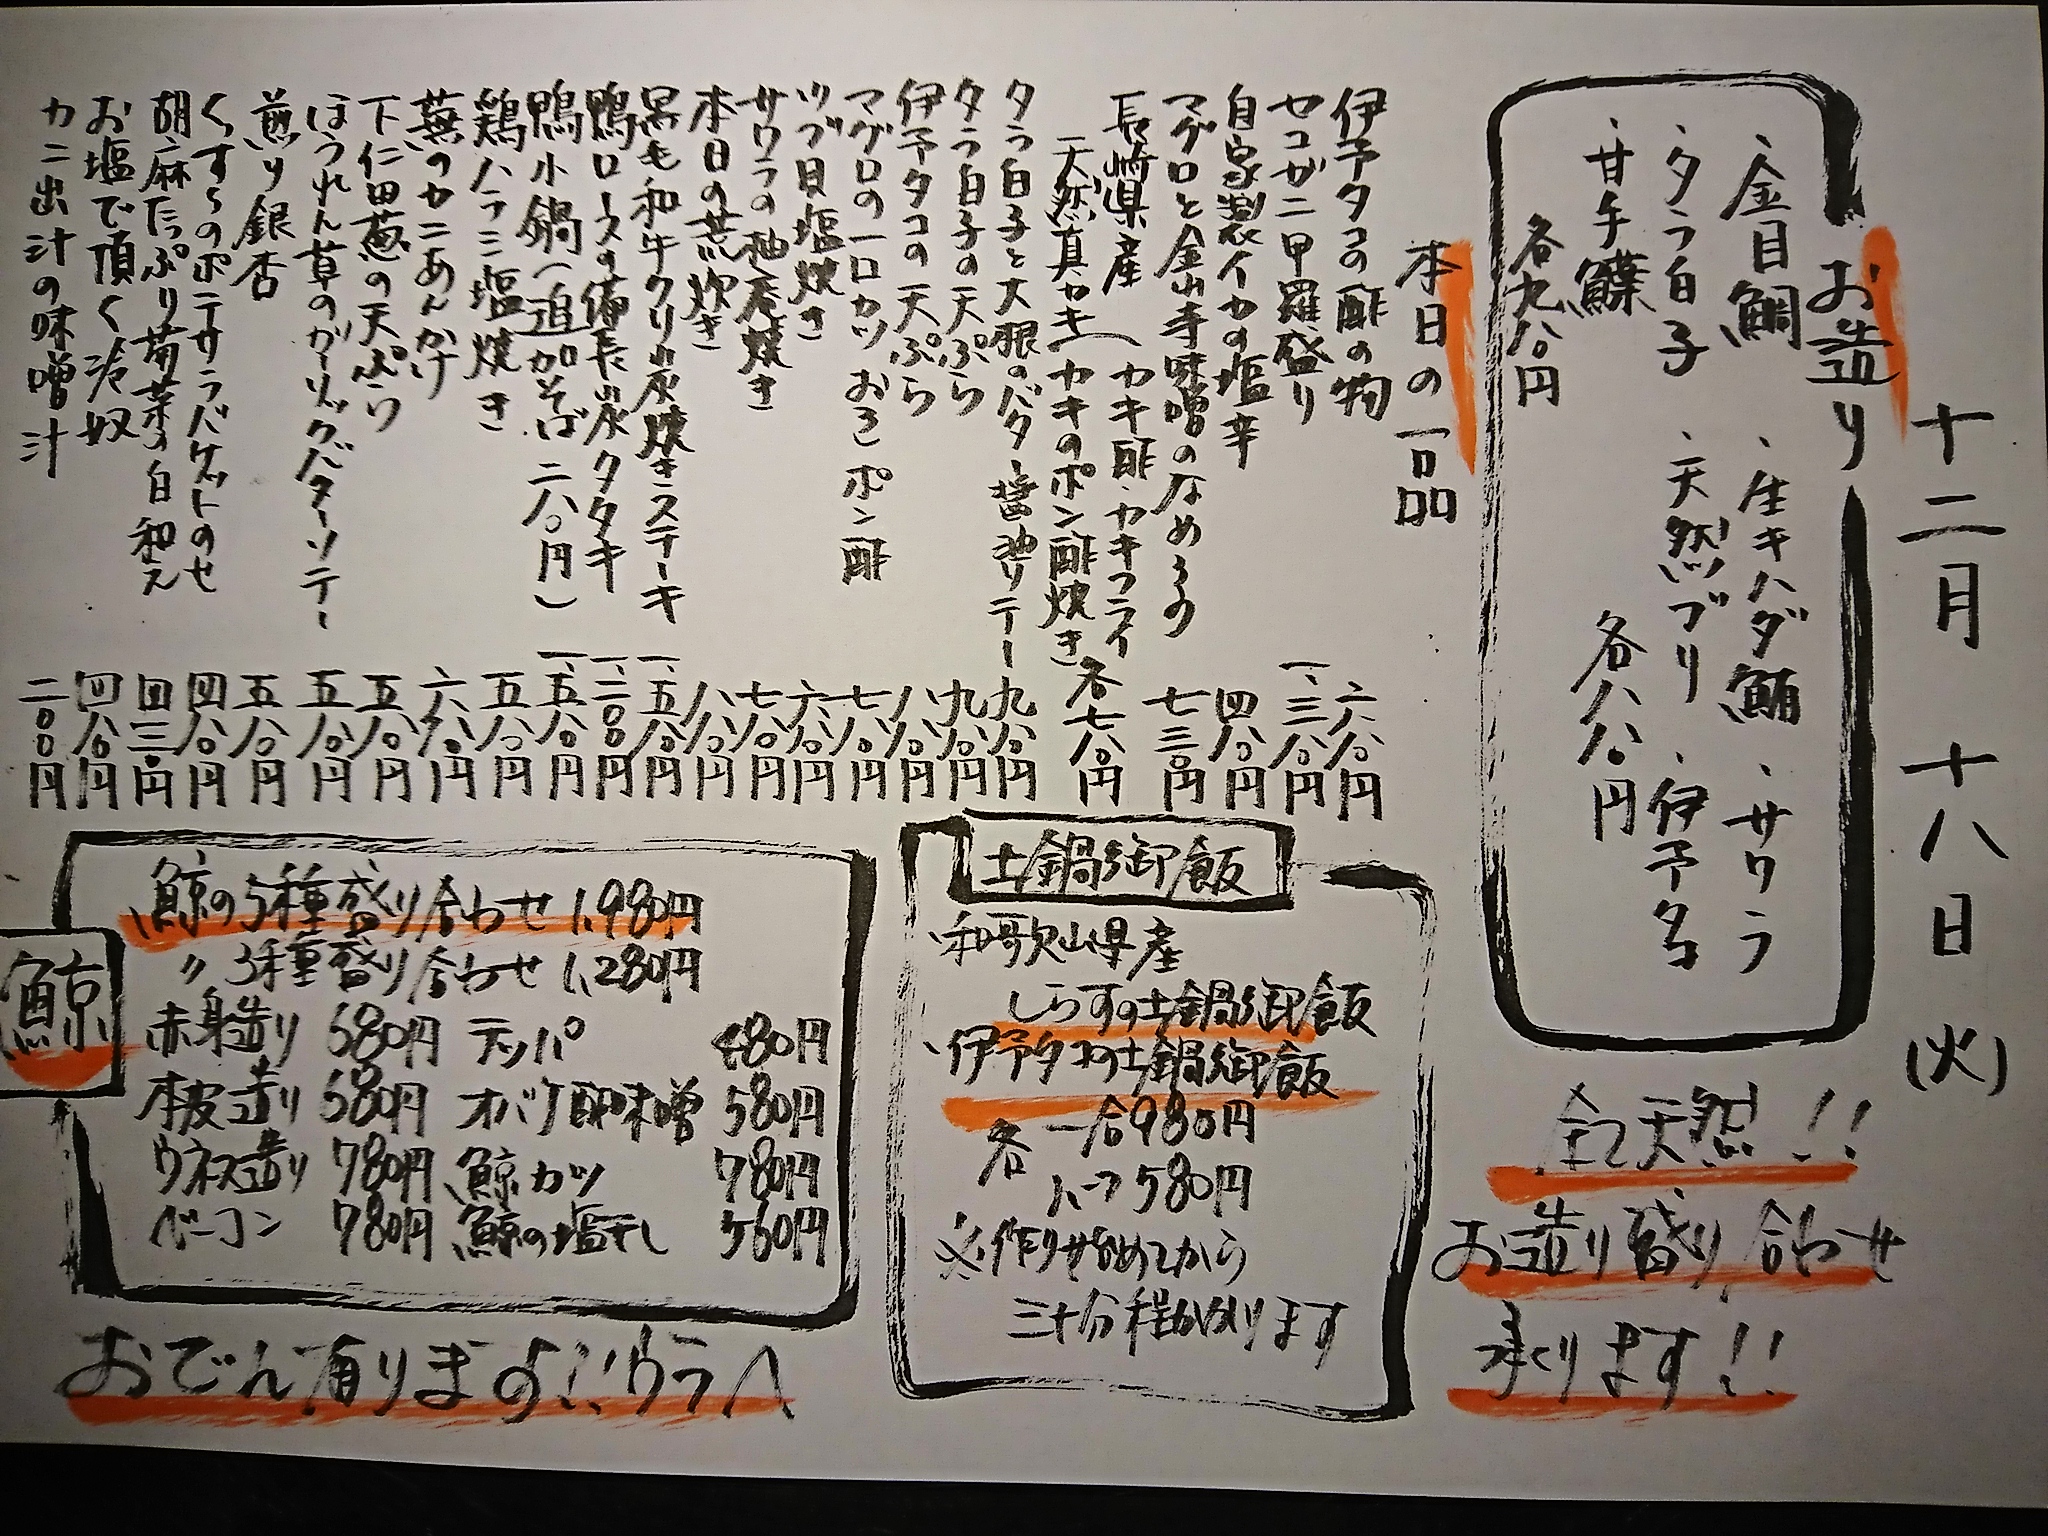 十二月 十八日 (火)
お造り
・金目鯛 ・生キハダ鮪 ・サワラ
・タラ白子 ・天然ブリ ・伊予タコ
・甘手鰈
各九八〇円
各八八〇円
全て天然!!
お造り盛り合わせ
承ります!!
本日の一品
伊予タコの酢の物 六八〇円
セコガニ甲羅盛り 一、三八〇円
自家製イカの塩辛 四八〇円
マグロと金山寺味噌のなめろう 七三〇円
長崎県産
天然真カキ(カキ酢・カキフライ
カキのポン酢焼き 各七八〇円
タラ白子と大根のバター醤油ソテー 九八〇円
タラ白子の天ぷら 九八〇円
伊予タコの天ぷら 八八〇円
マグロの一口カツ おろしポン酢 七八〇円
ツブ貝塩焼き 六八〇円
サワラの柚庵焼き 七八〇円
本日の荒炊き 八八〇円
黒毛和牛クリ炭焼きステーキ 一、五八〇円
鴨ロースの備長炭タタキ 一、二〇〇円
鴨小鍋(追加そば 二八〇円) 一、五八〇円
鶏ハラミ塩焼き 五八〇円
蕪のカニあんかけ 六八〇円
下仁田葱の天ぷら 五八〇円
ほうれん草のガーリックバターソテー 五八〇円
煎り銀杏 五八〇円
くずらのポテサラバケットのせ 四八〇円
胡麻たっぷり菊菜の白和え 四三〇円
お塩で頂く冷奴 四八〇円
カニ出汁の味噌汁 二〇〇円
土鍋御飯
・和歌山県産
しらすの土鍋御飯
・伊予タコの土鍋御飯
各 一合980円
ハーフ580円
※作り始めてから
三十分程かかります
鯨
鯨の5種盛り合わせ 1,980円
〃 3種盛り合わせ 1,280円
赤身造り 580円 テッパ 480円
本皮造り 580円 オバケ酢味噌 580円
ウネス造り 780円 鯨カツ 780円
ベーコン 780円 鯨の塩干し 560円
おでん有ります!!ウラへ